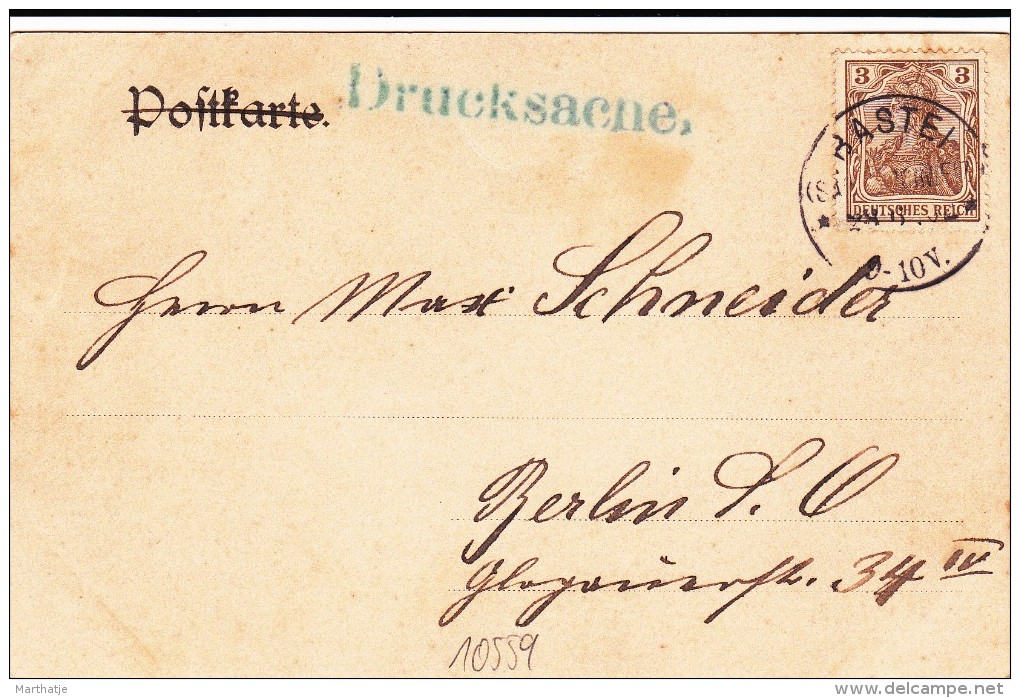 Postkarte.
Drucksache,
3 3
BASTEI
DEUTSCHES REICH
9-10V.
Herrn Max Schneider
Berlin S. O
Glogauerstr. 34 IV
10559
Marthatje
delcampe.net